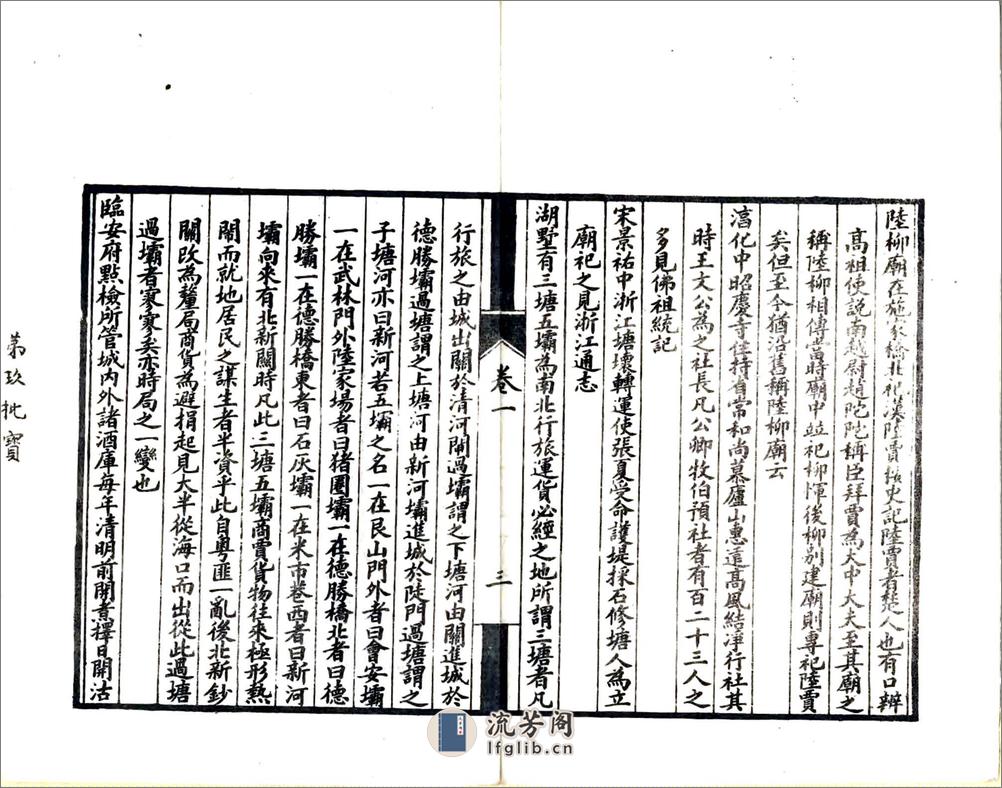 陸柳廟在施家橋北祀漢陸賈按史記陸賈者楚人也有口辨
高祖使說南越尉趙陀陀稱臣拜賈為大中大夫至其廟之
稱陸柳相傳當時廟中並祀柳惲後柳别建廟則專祀陸賈
矣但至今猶沿舊稱陸柳廟云
淳化中昭慶寺住持省常和尚慕廬山惠遠高風結凈行社其
時王文公為之社長凡公卿牧伯預社者有百二十三人之
多見佛祖統記
宋景祐中浙江塘壞轉運使張夏受命護堤採石修塘人為立
廟祀之見浙江通志
湖墅有三塘五壩為南北行旅運貨必經之地所謂三塘者凡
卷一
三
行旅之由城出關於清河閘過壩謂之下塘河由關進城於
德勝壩過塘謂之上塘河由新河壩進城於陡門過塘謂之
子塘河亦曰新河若五壩之名一在艮山門外者曰會安壩
一在武林門外陸家場者曰猪圈壩一在德勝橋北者曰德
勝壩一在德勝橋東者曰石灰壩一在米市巷西者曰新河
壩向來有北新關時凡此三塘五壩商賈貨物往來極形熱
鬧而就地居民之謀生者半資乎此自粵匪一亂後北新鈔
關改為釐局商貨為避捐起見大半從海口而出從此過塘
過壩者寥寥矣亦時局之一變也
臨安府點檢所管城內外諸酒庫每年清明前開煮擇日開沽
第玖批寶
流芳阁
lfglib.cn